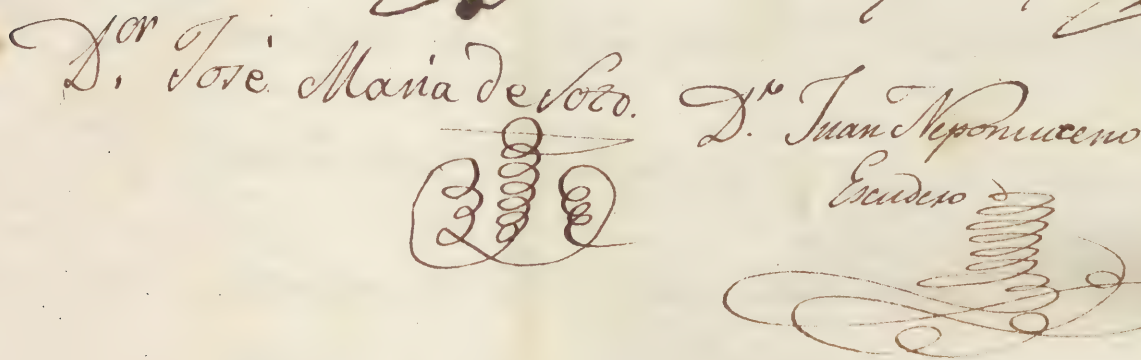 D.or José Maria de Soto.
D.r Juan Nepomuceno
Escudero